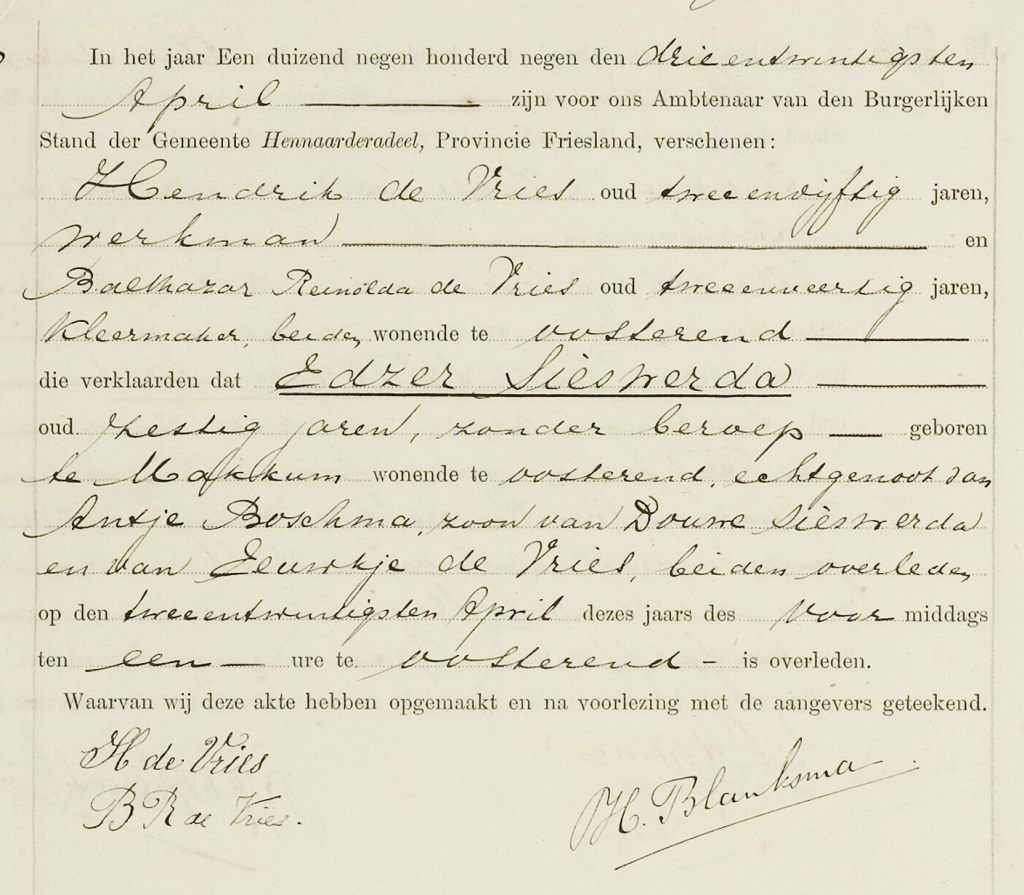 In het jaar Een duizend negen honderd negen den drieentwintigsten
April zijn voor ons Ambtenaar van den Burgerlijken
Stand der Gemeente Hennaarderadeel, Provincie Friesland, verschenen:
Hendrik de Vries oud tweeenvijftig jaren,
werkman en
Balthazar Reinolda de Vries oud tweeenveertig jaren,
kleermaker, beiden wonende te Oosterend
die verklaarden dat Edzer Siëswerda
oud zestig jaren, zonder beroep geboren
te Makkum wonende te Oosterend, echtgenoot van
Antje Boschma, zoon van Douwe Siëswerda
en van Eeuwkje de Vries, beiden overleden
op den tweeentwintigsten April dezes jaars des voor middags
ten een ure te Oosterend - is overleden.
Waarvan wij deze akte hebben opgemaakt en na voorlezing met de aangevers geteekend.
H de Vries
B R de Vries.
H. Blanksma